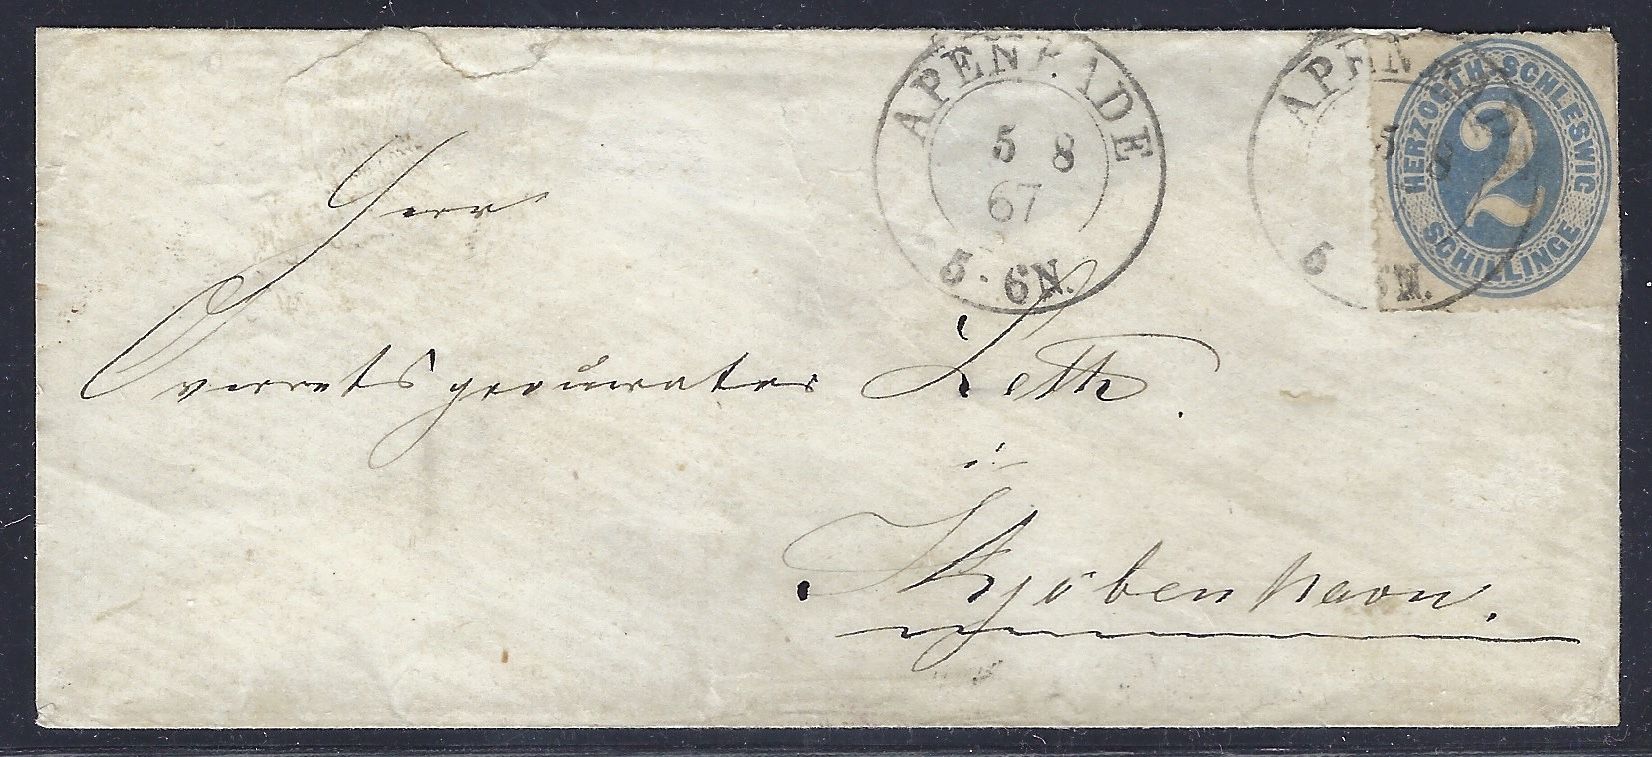 APENRADE
5 8
67
5-6N.
APEN
5 8
5 6N.
HERZOGTH. SCHLESWIG
2
SCHILLINGE
Herr
Overretsprocurator Leth.
i
Kjöbenhavn.